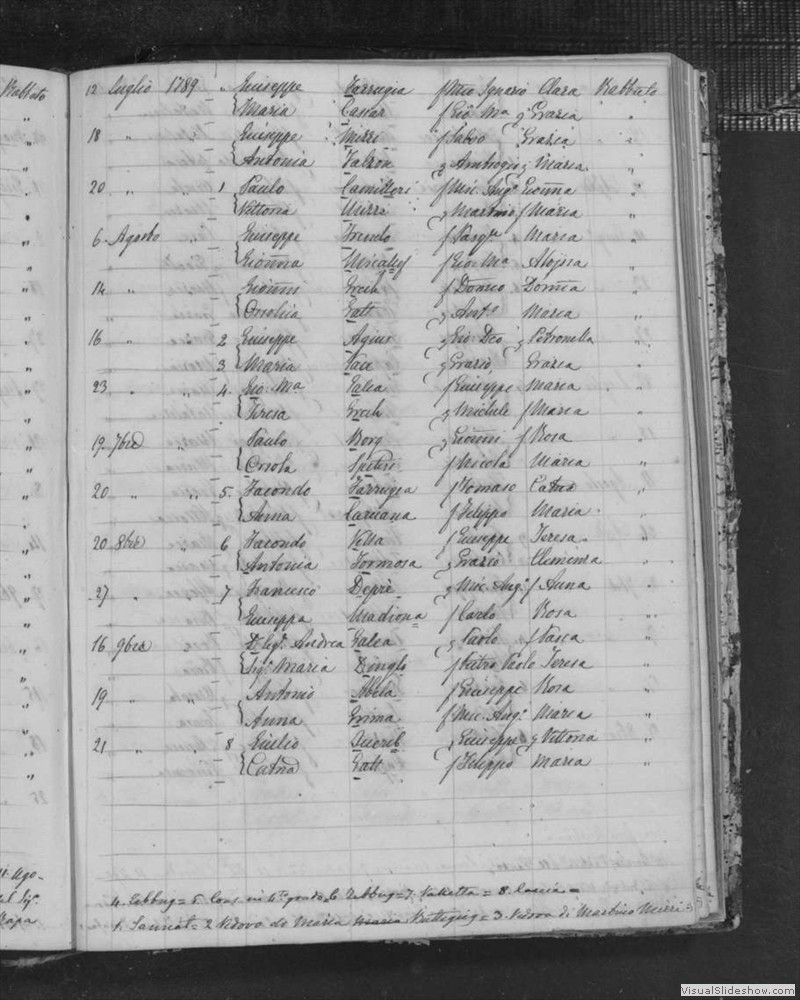 Rabbato
12 Luglio 1789 " Giuseppe Farrugia f Mic Ignazio Clara Rabbato
Maria Caxar f Gio Mª g Grazia "
18 " " Giuseppe Mizzi f Salvo Grazia "
Antonia g Ambrogio g Maria "
20 " " 1 Paulo Camilleri f Mic. Angº Gioñna "
Vittoria Mizzi g Martino f Maria "
6 Agosto " Giuseppe f Maria "
Gioñna Micallef f Gio Mª Aloisia "
14 " Gioñni Grech f
Orsolia Gatt g Antº Maria "
16 " 2 Giuseppe Agius g Gio: g Petronella "
3 Maria Pace g Grazio Grazia "
23 " 4. Gio: Mª Galea f Giuseppe Maria "
Teresa Grech g Michele f Maria "
19 7bre " Paulo Borg g Gioñni f Rosa "
Orsola Spiteri f Nicola Maria "
20 " " 5. Facondo Farrugia f Tomaso Catna "
Anna Caruana f Filippo Maria "
20 8bre " 6 Facondo Vella f Giuseppe Teresa "
Antonia Formosa g Grazio Clemenza "
27 " 7 Francesco Depré g Mic. Angº f Anna "
Giuseppa Madiona f Carlo Rosa "
16 9bre D: Sigr. Andrea Galea g Paolo f Pasca "
Sigª Maria Dingli f Pietro Paolo Teresa "
19 " Antonio Abela f Giuseppe Rosa "
Anna Grima f Mic. Angº Maria "
21 " " 8 Giulio Xuereb g Giuseppe g Vittoria "
Catna Gatt f Filippo Maria "
4. Zebbug = 5. Cons. in 4to grado. 6. Zebbug = 7. Valletta = 8. =
1. Sannat = 2 Vedovo di Maria = 3. Vedova di Martino Mizzi =
VisualSlideshow.com